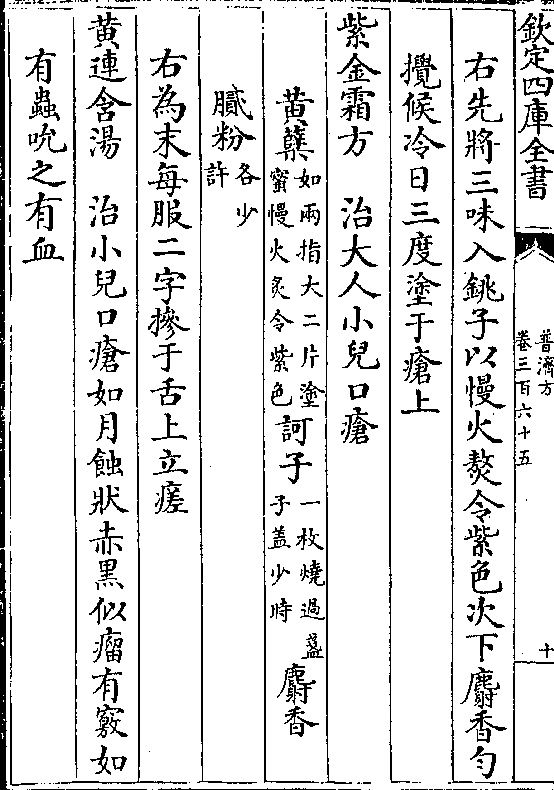 欽定四庫全書
普濟方
卷三百六十五
十
右先將三味入銚子以慢火熬令紫色次下麝香勻
攪候冷日三度塗于瘡上
紫金霜方　治大人小兒口瘡
黄蘗如兩指大二片塗蜜慢火炙令紫色訶子一枚燒過盞子盖少時麝香
膩粉各少許
右為末每服二字摻于舌上立瘥
黄連含湯　治小兒口瘡如月蝕狀赤黑似瘤有竅如
有蟲吮之有血